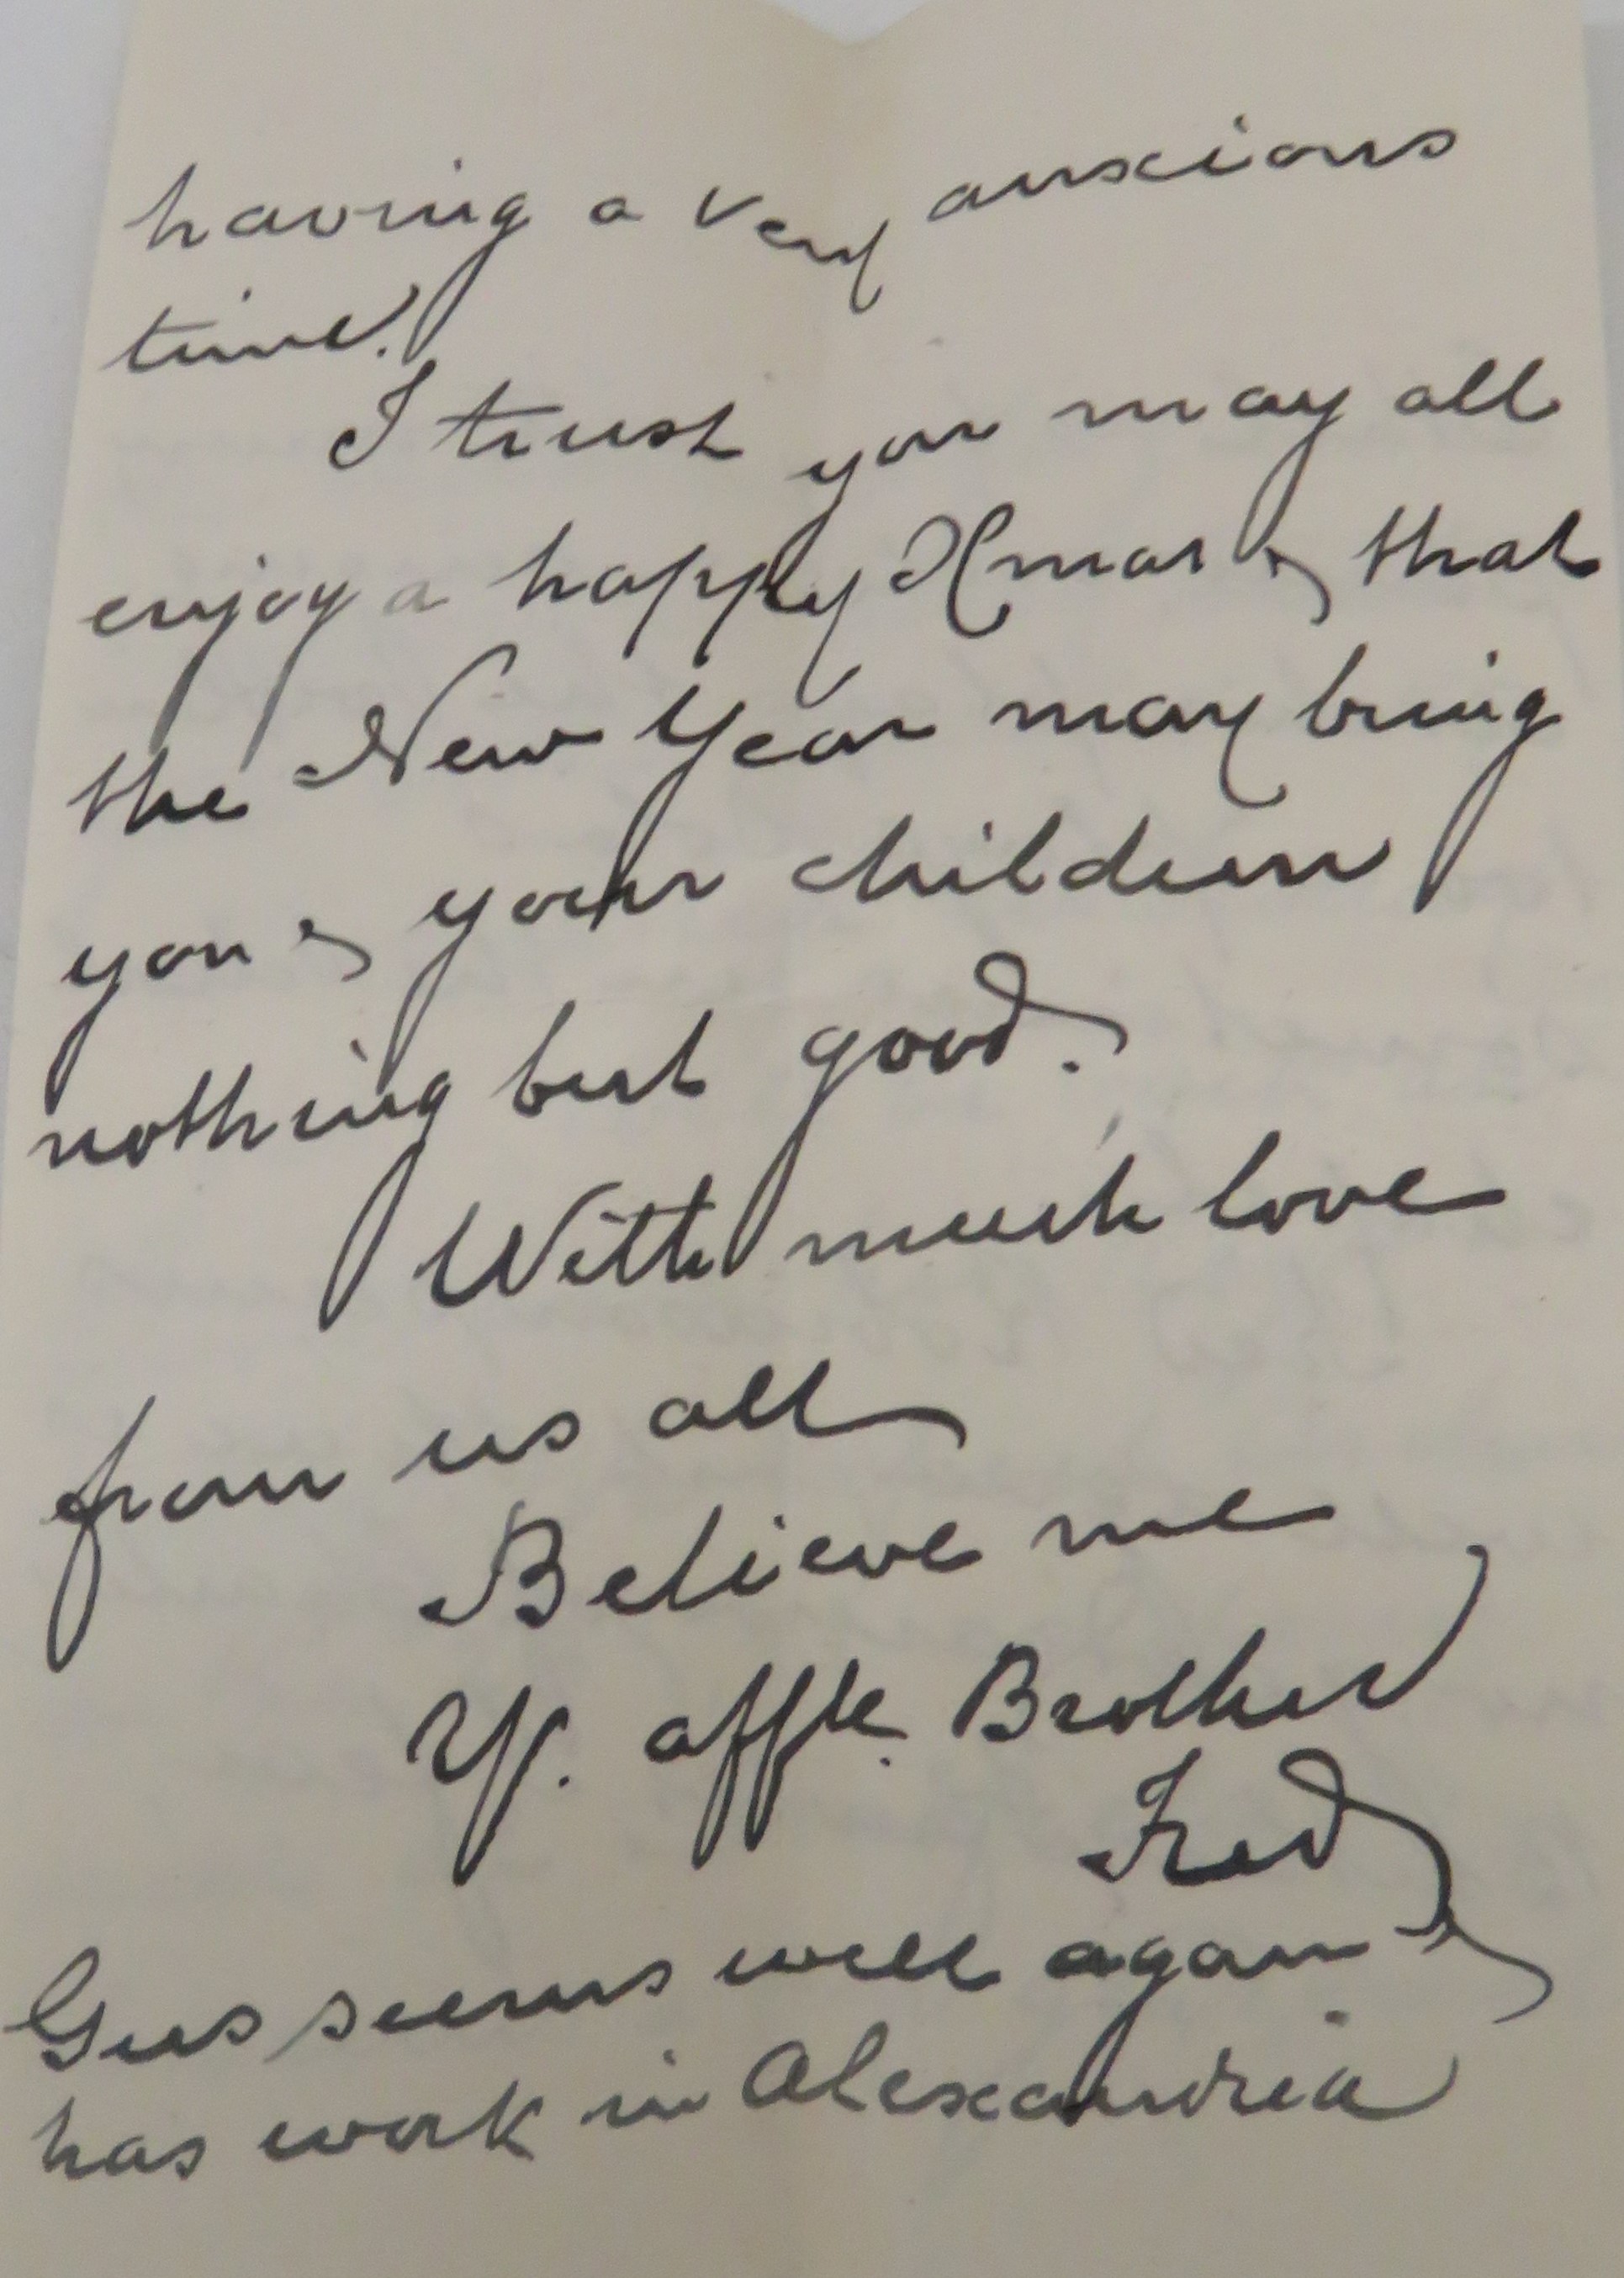 having a very anxious
time.
I trust you may all
enjoy a happy Xmas & that
the New Year may bring
you & your children
nothing but good.
With much love
from us all
Believe me
Yr. affte. Brother
Fred
Gus seems well again &
has work in Alexandria